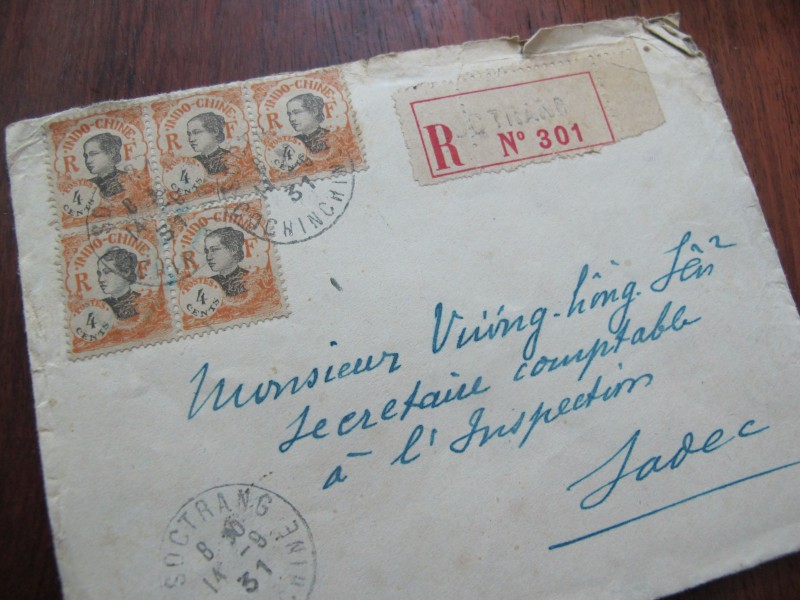 INDO-CHINE
R F
POSTES
4
CENTS
INDO-CHINE
R F
POSTES
4
CENTS
INDO-CHINE
R F
POSTES
4
CENTS
INDO-CHINE
R F
POSTES
4
CENTS
INDO-CHINE
R F
POSTES
4
CENTS
COCHINCHINE
31
TRANG
R Nº 301
Monsieur Vương-hồng-Sển
Secrétaire comptable
à l'Inspection
Sadec
SOCTRANG
8 30
14 -9
31